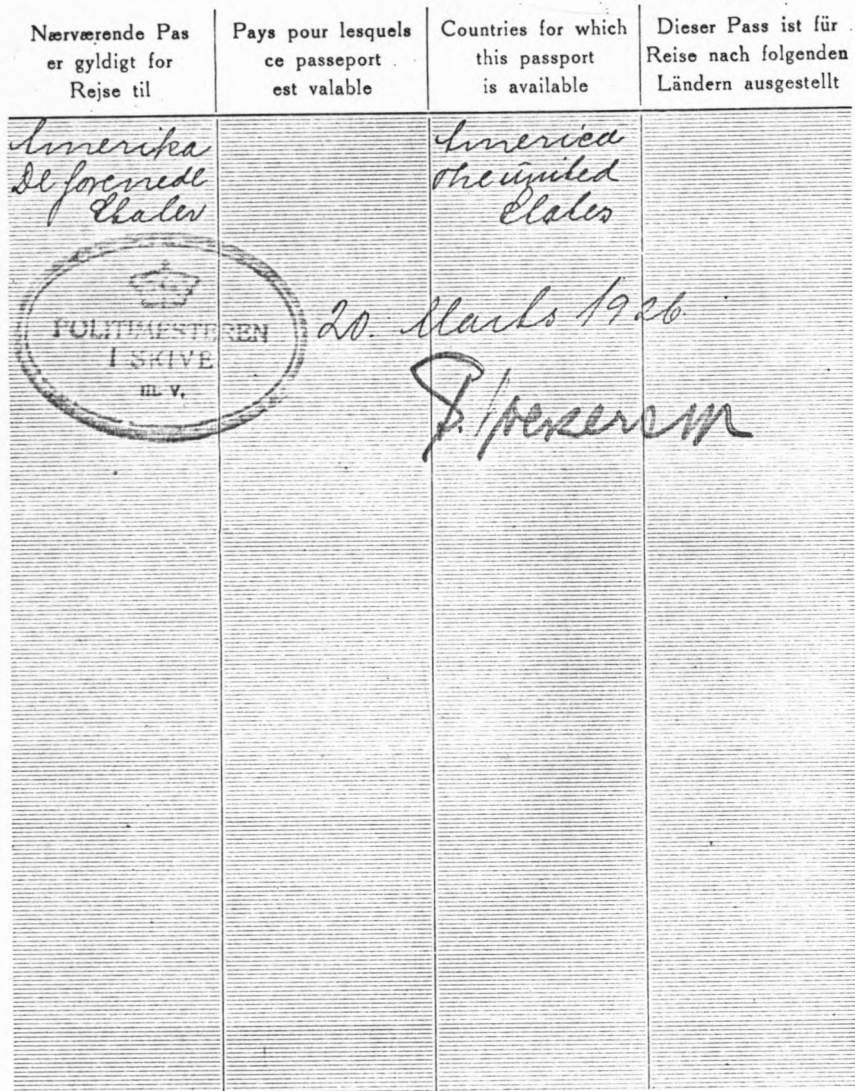 Nærværende Pas
er gyldigt for
Rejse til
Pays pour lesquels
ce passeport
est valable
Countries for which
this passport
is available
Dieser Pass ist für
Reise nach folgenden
Ländern ausgestellt
Amerika
De forenede
Stater
America
the united
States
POLITIMESTEREN
I SKIVE
m. v.
20. Marts 1926